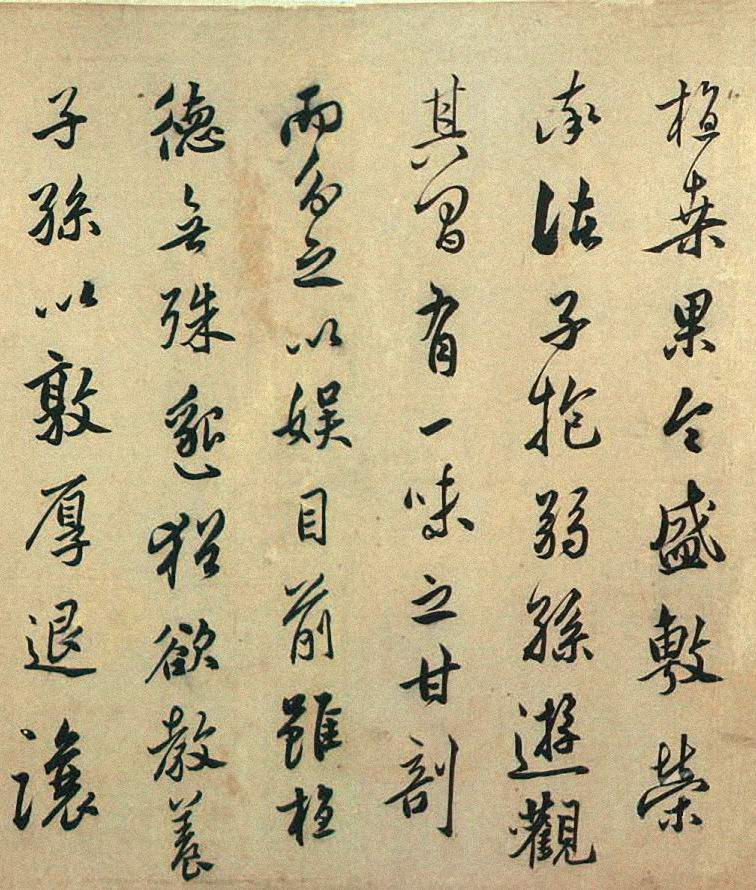 植桑果今盛敷榮
率諸子抱弱孫遊觀
其間有一味之甘剖
而分之以娛目前雖植
德無殊邈猶欲教養
子孫以敦厚退讓